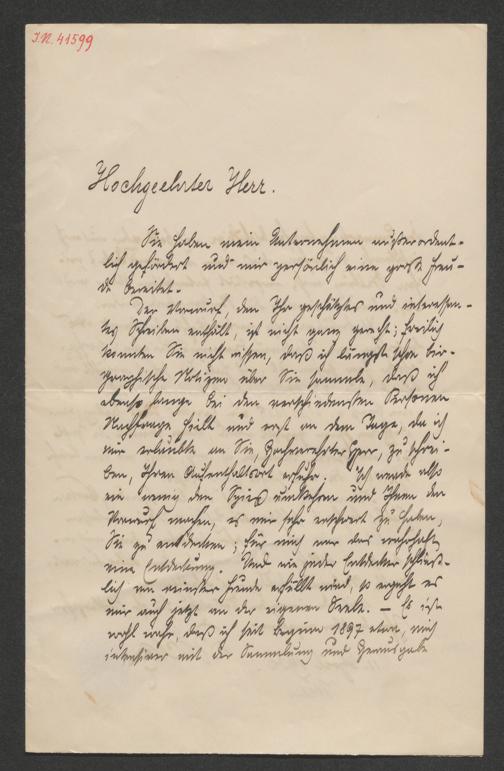 I.N. 41599
Hochgeehrter Herr.
Sie haben mein Unternehmen außerordent-
lich gefördert und mir persönlich eine große Freu-
de bereitet.
Der Vorwurf, den Ihr geschätztes und interessan-
tes Schreiben enthält, ist nicht ganz gerecht; freilich
konnten Sie nicht wissen, daß ich längst schon bio-
graphische Notizen über Sie sammle, daß ich
ebenso lange bei den verschiedensten Personen
Nachfrage hielt und erst an dem Tage, da ich
mir erlaubte an Sie, hochverehrter Herr, zu schrei-
ben, Ihren Aufenthaltsort erfuhr. Ich werde also
ein wenig den Spieß umkehren und Ihnen den
Vorwurf machen, es mir sehr erschwert zu haben,
Sie zu entdecken; für mich war das wahrhaft
eine Entdeckung. Und wie jeder Entdecker schließ-
lich von reinster Freude erfüllt wird, so ergeht es
mir auch jetzt an der eigenen Seele. — Es ist
wohl wahr, daß ich seit Beginn 1897 etwa, mich
intensiver mit der Sammlung und Herausgabe